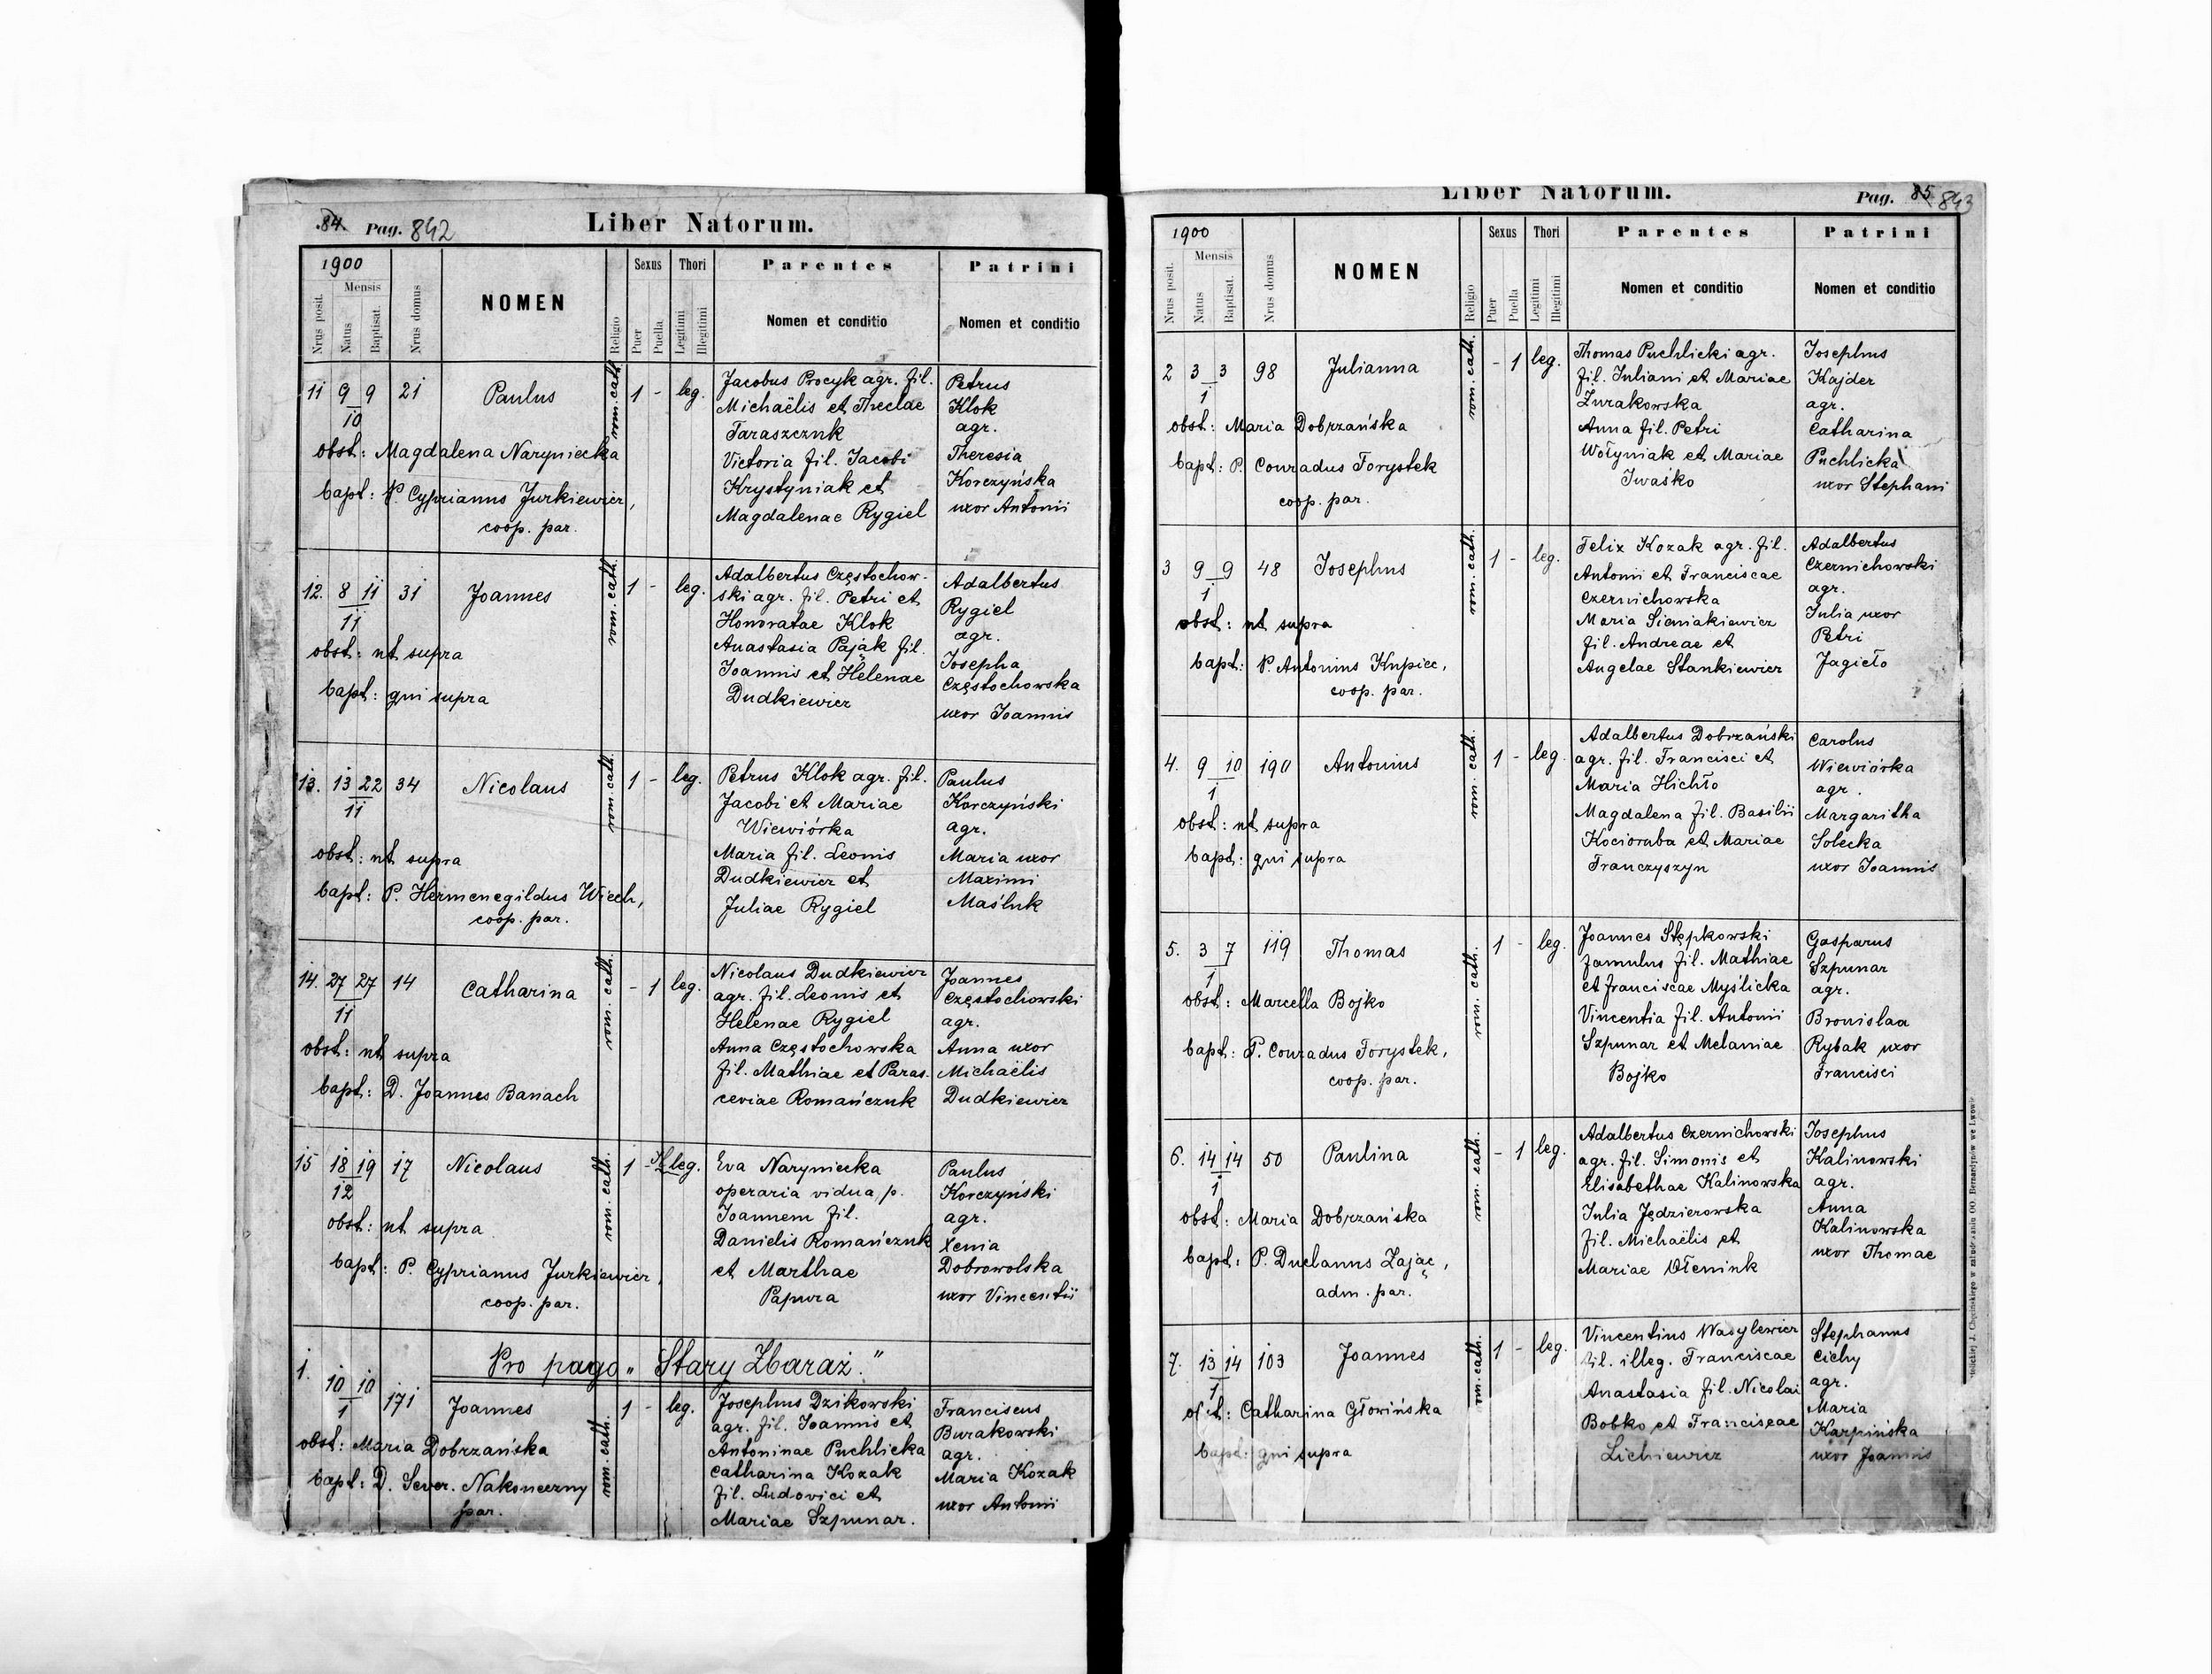 84 Pag. 842 Liber Natorum.
1900 Mensis
Nrus posit. Natus Baptisat. Nrus domus NOMEN Religio
Sexus Puer Puella Thori Legitimi Illegitimi
Parentes Nomen et conditio
Patrini Nomen et conditio
11 9 9 21 Paulus rom. cath. 1 - leg.
10
obst: Magdalena Naryniecka
bapt: P. Cyprianus Jurkiewicz,
coop. par.
Jacobus Procyk agr. fil.
Michaëlis et Theclae
Taraszczuk
Victoria fil. Jacobi
Krystyniak et
Magdalenae Rygiel
Petrus
Klok
agr.
Theresia
Korczyńska
uxor Antonii
12. 8 11 31 Joannes rom. cath. 1 - leg.
11
obst: ut supra
bapt: qui supra
Adalbertus Częstochow-
ski agr. fil. Petri et
Honoratae Klok
Anastasia Pająk fil.
Joannis et Helenae
Dudkiewicz
Adalbertus
Rygiel
agr.
Josepha
Częstochowska
uxor Joannis
13. 13 22 34 Nicolaus rom. cath. 1 - leg.
11
obst: ut supra
bapt: P. Hermenegildus Wiech,
coop. par.
Petrus Klok agr. fil.
Jacobi et Mariae
Wiewiórka
Maria fil. Leonis
Dudkiewicz et
Juliae Rygiel
Paulus
Korczyński
agr.
Maria uxor
Maximi
Maśluk
14. 27 27 14 Catharina rom. cath. - 1 leg.
11
obst: ut supra
bapt: D. Joannes Banach
Nicolaus Dudkiewicz
agr. fil. Leonis et
Helenae Rygiel
Anna Częstochowska
fil. Mathiae et Paras-
ceviae Romańczuk
Joannes
Częstochowski
agr.
Anna uxor
Michaëlis
Dudkiewicz
15 18 19 17 Nicolaus rom. cath. 1 - Illeg.
12
obst: ut supra
bapt: P. Cyprianus Jurkiewicz,
coop. par.
Eva Naryniecka
operaria vidua p.
Joannem fil.
Danielis Romańczuk
et Marthae
Papura
Paulus
Korczyński
agr.
Xenia
Dobrowolska
uxor Vincentii
Pro pago „Stary Zbaraż."
1. 10 10 171 Joannes rom. cath. 1 - leg.
1
obst: Maria Dobrzańska
bapt: D. Sever. Nakoneczny
par.
Josephus Dzikowski
agr. fil. Joannis et
Antoninae Puchlicka
Catharina Kozak
fil. Ludovici et
Mariae Szpunar.
Franciscus
Burakowski
agr.
Maria Kozak
uxor Antonii
Liber Natorum. Pag. 85 843
1900 Mensis
Nrus posit. Natus Baptisat. Nrus domus NOMEN Religio
Sexus Puer Puella Thori Legitimi Illegitimi
Parentes Nomen et conditio
Patrini Nomen et conditio
2 3 3 98 Julianna rom. cath. - 1 leg.
1
obst: Maria Dobrzańska
bapt: P. Conradus Forystek
coop. par.
Thomas Puchlicki agr.
fil. Juliani et Mariae
Żurakowska
Anna fil. Petri
Wołyniak et Mariae
Iwaśko
Josephus
Kajder
agr.
Catharina
Puchlicka
uxor Stephani
3 9 9 48 Josephus rom. cath. 1 - leg.
1
obst: ut supra
bapt: P. Antonius Kupiec,
coop. par.
Felix Kozak agr. fil.
Antonii et Franciscae
Czernichowska
Maria Sieniakiewicz
fil. Andreae et
Angelae Stankiewicz
Adalbertus
Czernichowski
agr.
Julia uxor
Petri
Jagieło
4. 9 10 190 Antonius rom. cath. 1 - leg
1
obst: ut supra
bapt: qui supra
Adalbertus Dobrzański
agr. fil. Francisci et
Maria Hichło
Magdalena fil. Basilii
Kocioruba et Mariae
Franczyszyn
Carolus
Wiewiórka
agr.
Margaritha
Solecka
uxor Joannis
5. 3 7 119 Thomas rom. cath. 1 - leg.
1
obst: Marcella Bojko
bapt: P. Conradus Forystek,
coop. par.
Joannes Stępkowski
famulus fil. Mathiae
et Franciscae Myślicka
Vincentia fil. Antonii
Szpunar et Melaniae
Bojko
Gasparus
Szpunar
agr.
Bronislaa
Rybak uxor
Francisci
6. 14 14 50 Paulina rom. cath. - 1 leg.
1
obst: Maria Dobrzańska
bapt: P. Duclanus Zając,
adm. par.
Adalbertus Czernichowski
agr. fil. Simonis et
Elisabethae Kalinowska
Julia Jędzierowska
fil. Michaëlis et
Mariae Ołeniuk
Josephus
Kalinowski
agr.
Anna
Kalinowska
uxor Thomae
7. 13 14 103 Joannes rom. cath. 1 - leg.
1
obst: Catharina Głowińska
bapt: qui supra
Vincentius Wasylewicz
fil. illeg. Franciscae
Anastasia fil. Nicolai
Bobko et Franciscae
Lichiewicz
Stephanus
Cichy
agr.
Maria
Karpińska
uxor Joannis